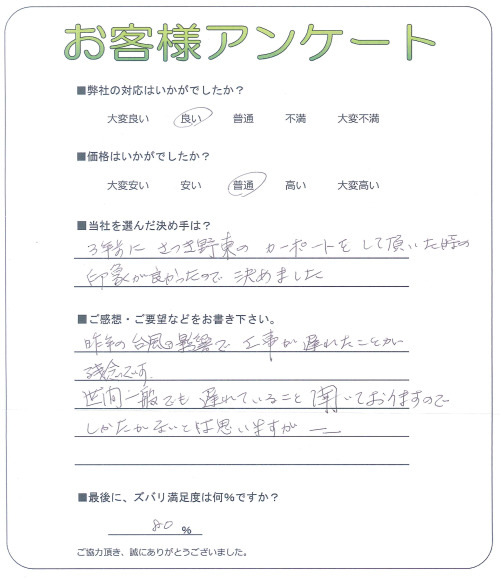 お客様アンケート
■弊社の対応はいかがでしたか？
大変良い 良い 普通 不満 大変不満
■価格はいかがでしたか？
大変安い 安い 普通 高い 大変高い
■当社を選んだ決め手は？
3年前に さつき野東の カーポートを して頂いた時の
印象が良かったので 決めました
■ご感想・ご要望などをお書き下さい。
昨年の台風の影響で 工事が 遅れたことが
残念です
世間一般でも 遅れていること 聞いておりますので
しかたがないとは思いますが ー
■最後に、ズバリ満足度は何%ですか？
80 %
ご協力頂き、誠にありがとうございました。